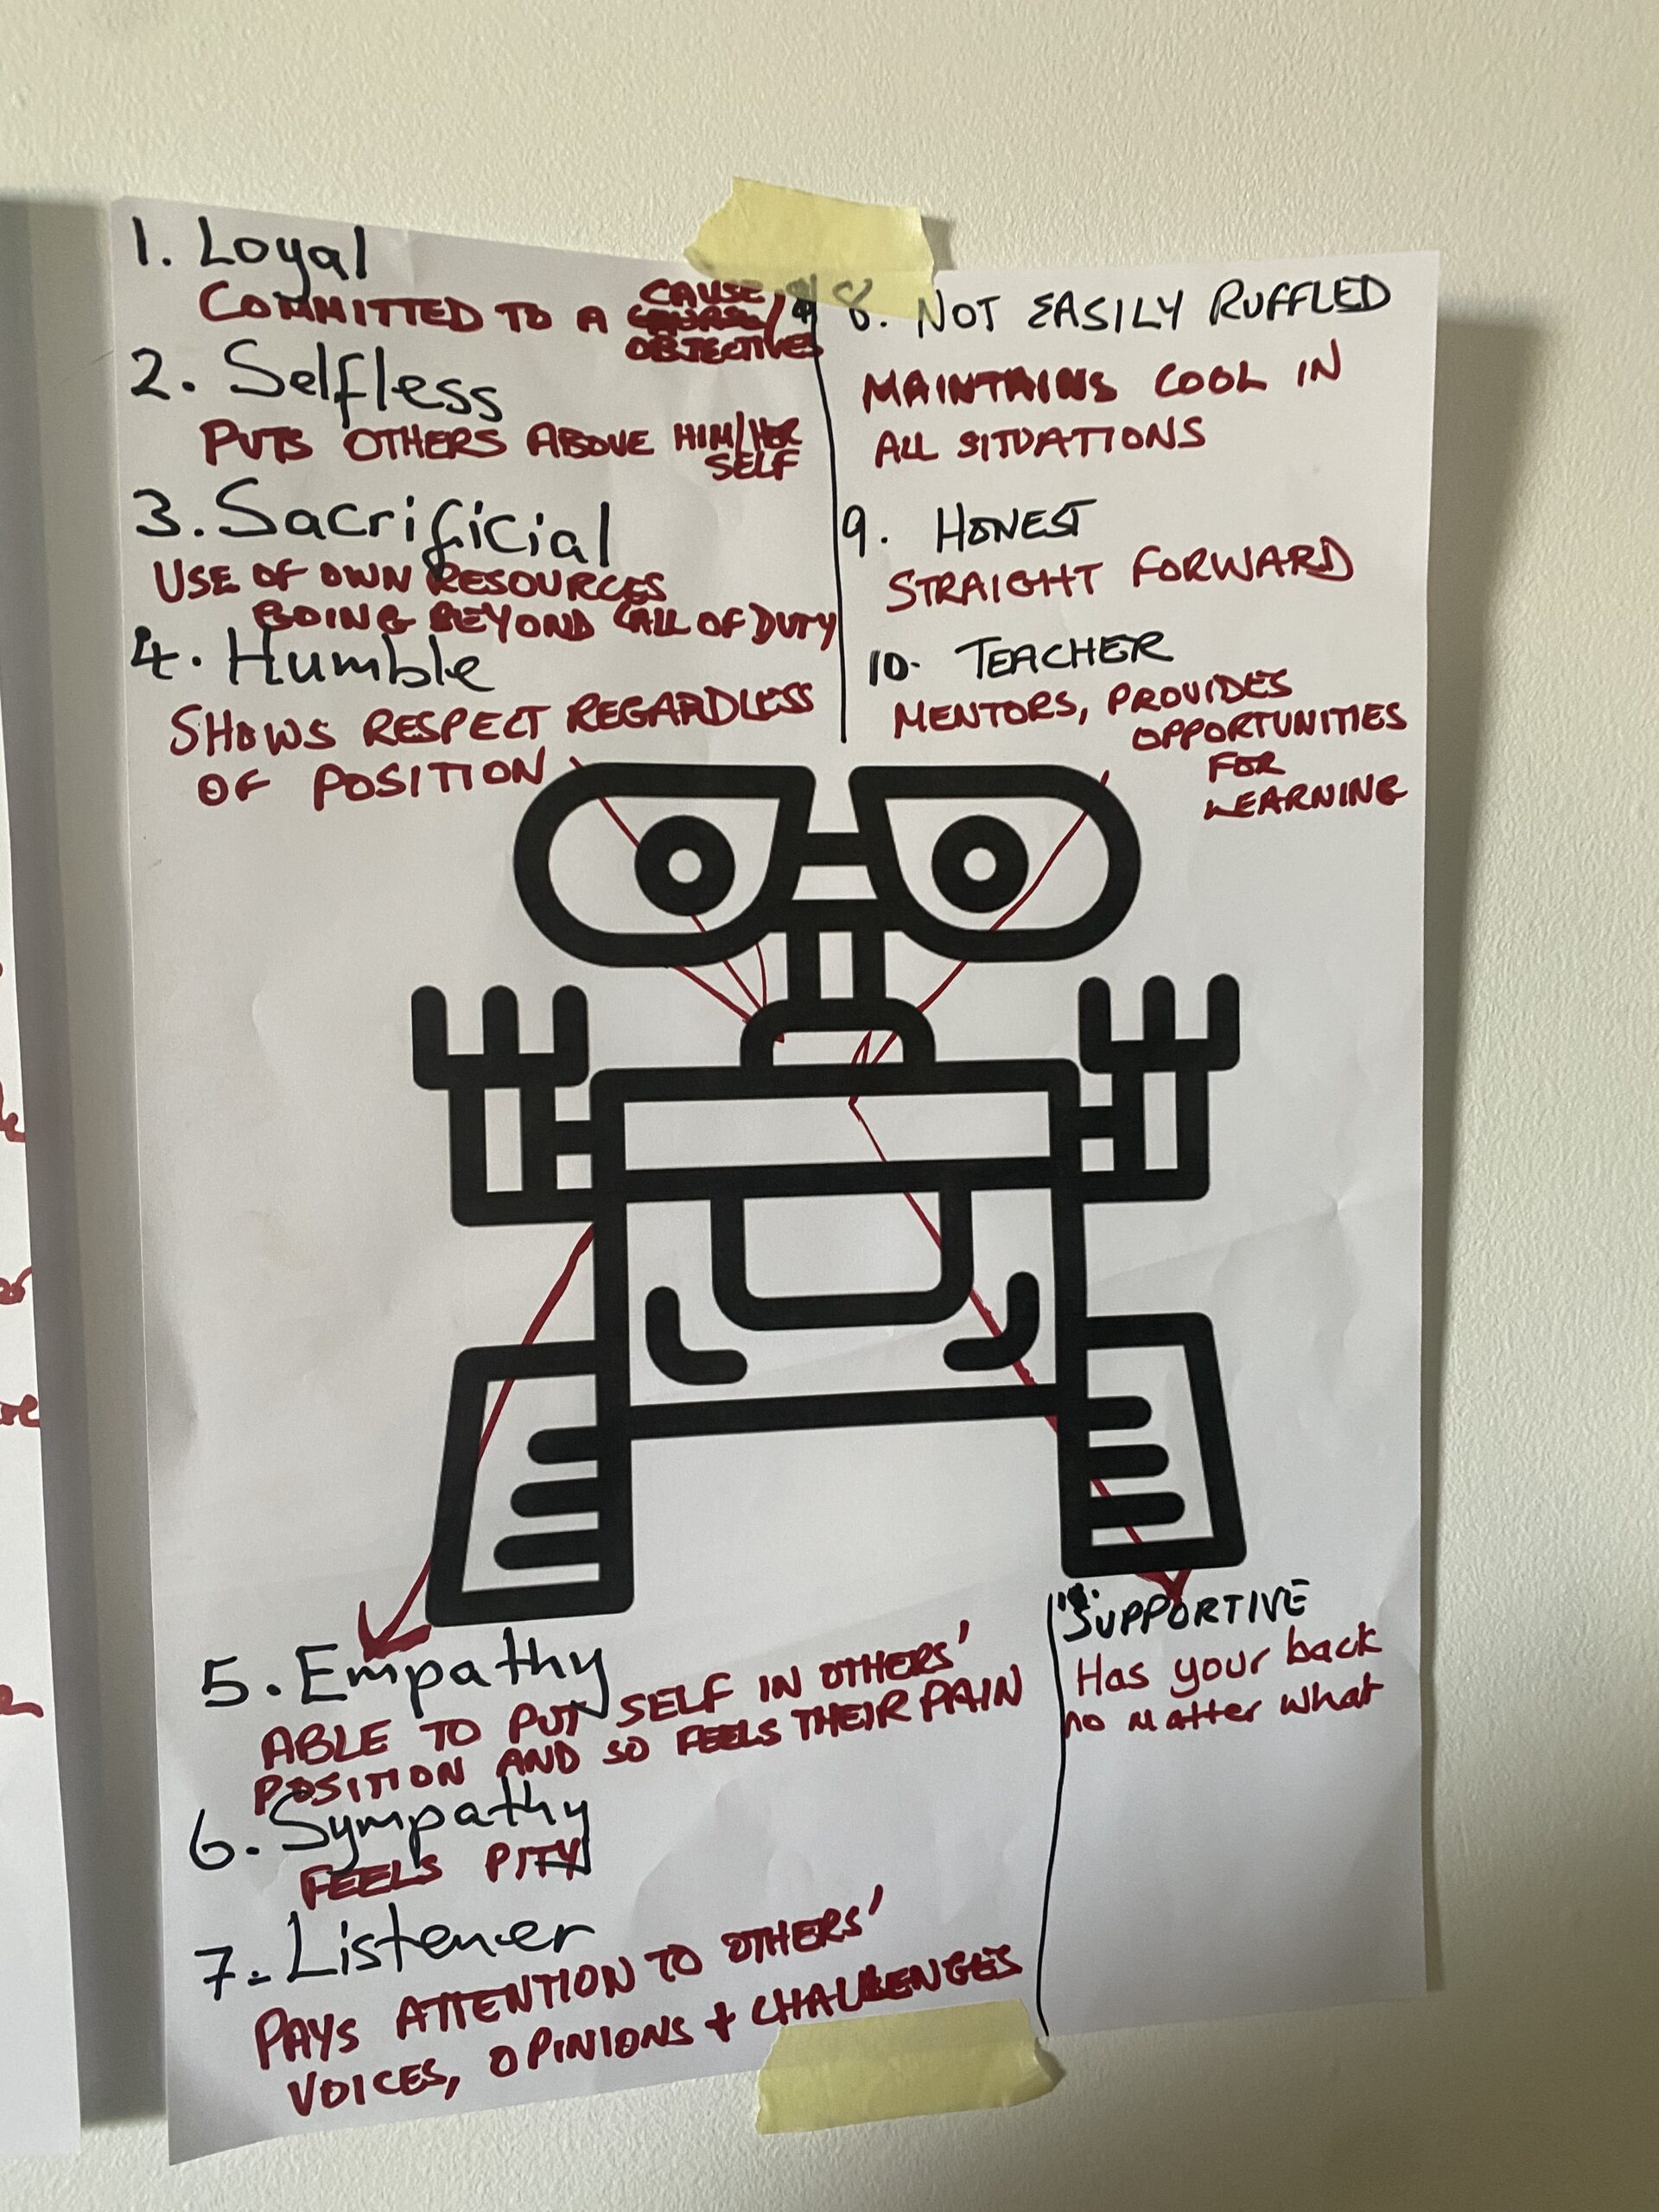 1. Loyal
COMMITTED TO A CAUSE/
OBJECTIVES
2. Selfless
PUTS OTHERS ABOVE HIM/HER
SELF
3. Sacrificial
USE OF OWN RESOURCES
GOING BEYOND CALL OF DUTY
4. Humble
SHOWS RESPECT REGARDLESS
OF POSITION
8. NOT EASILY RUFFLED
MAINTAINS COOL IN
ALL SITUATIONS
9. HONEST
STRAIGHT FORWARD
10. TEACHER
MENTORS, PROVIDES
OPPORTUNITIES
FOR
LEARNING
5. Empathy
ABLE TO PUT SELF IN OTHERS'
POSITION AND SO FEELS THEIR PAIN
6. Sympathy
FEELS PITY
7. Listener
PAYS ATTENTION TO OTHERS'
VOICES, OPINIONS + CHALLENGES
SUPPORTIVE
Has your back
no matter what